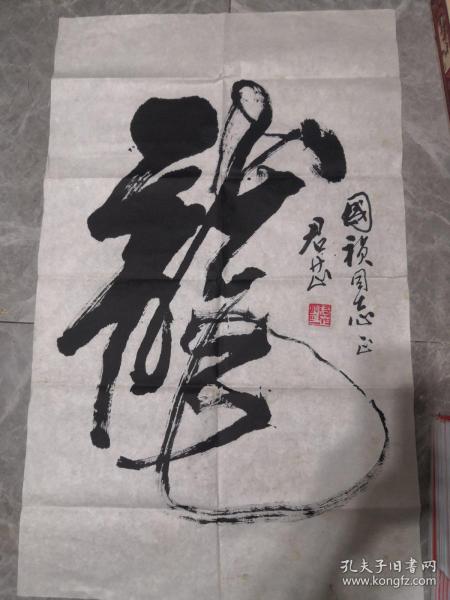 龍
國禎同志正
君岱
孔夫子旧书网
www.kongfz.com